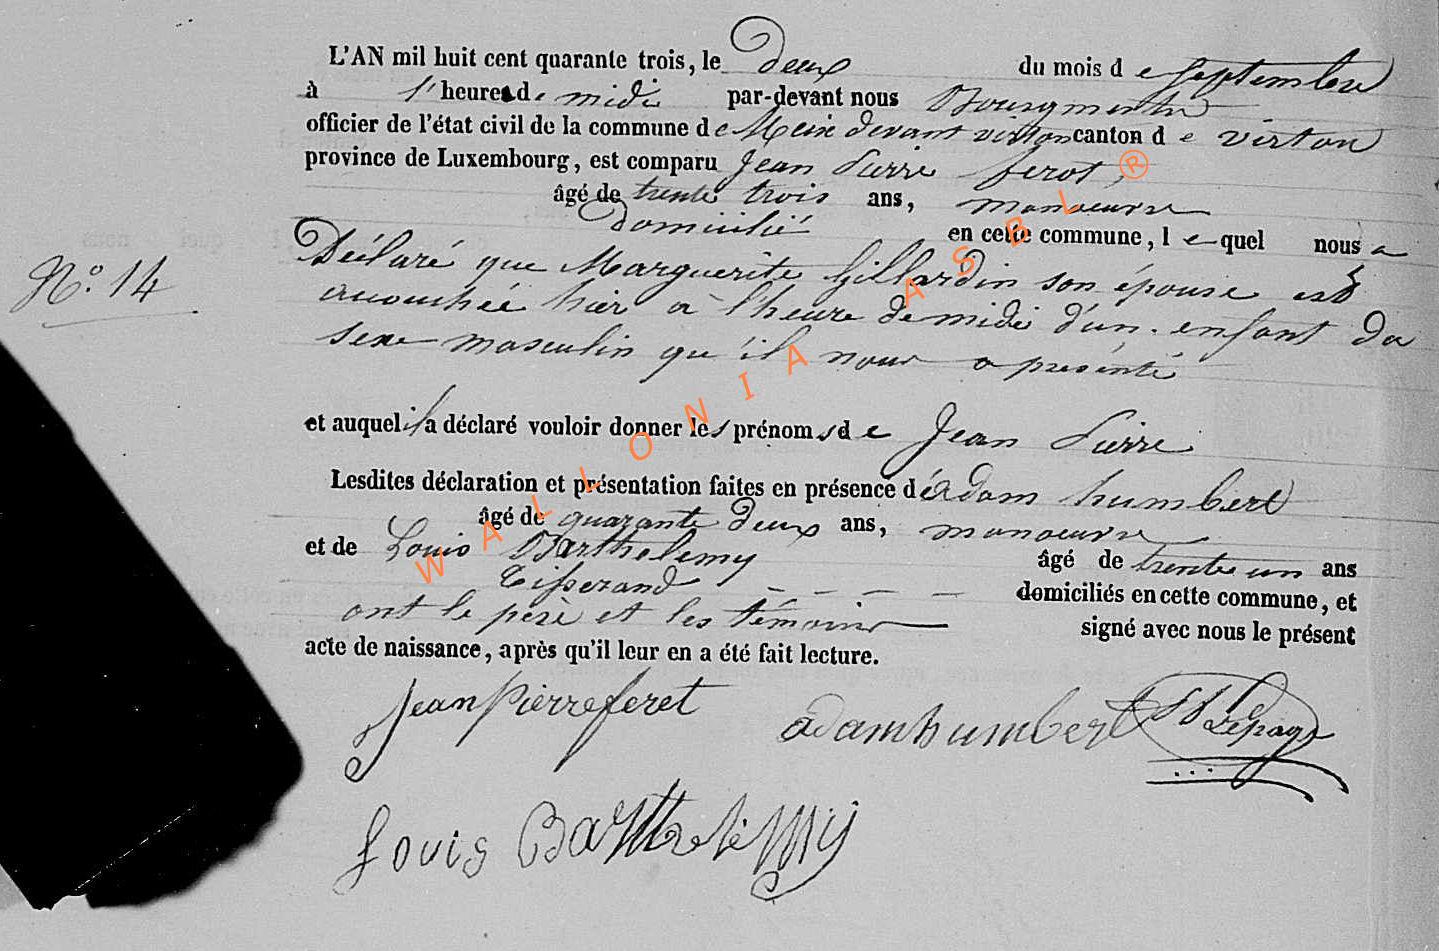 L'AN mil huit cent quarante trois, le deux du mois de Septembre
à l'heure de midi par-devant nous Bourgmestre
officier de l'état civil de la commune de Meix devant virton canton de virton
province de Luxembourg, est comparu Jean Pierre feret,
âgé de trente trois ans, manoeuvre
domicilié en cette commune, lequel nous a
Déclaré que Marguerite Gillardin son épouse est
N.° 14
accouchée hier à l'heure de midi d'un enfant du
sexe masculin qu'il nous a présenté
et auquel il a déclaré vouloir donner les prénoms de Jean Pierre
Lesdites déclaration et présentation faites en présence d'adam humbert
âgé de quarante deux ans, manoeuvre
et de Louis Barthelemy âgé de trente un ans
Tisserand domiciliés en cette commune, et
ont le père et les témoins signé avec nous le présent
acte de naissance, après qu'il leur en a été fait lecture.
Jean Pierre feret
adam humbert Lepage
Louis Barthelémy
WALLONIA ASBL®